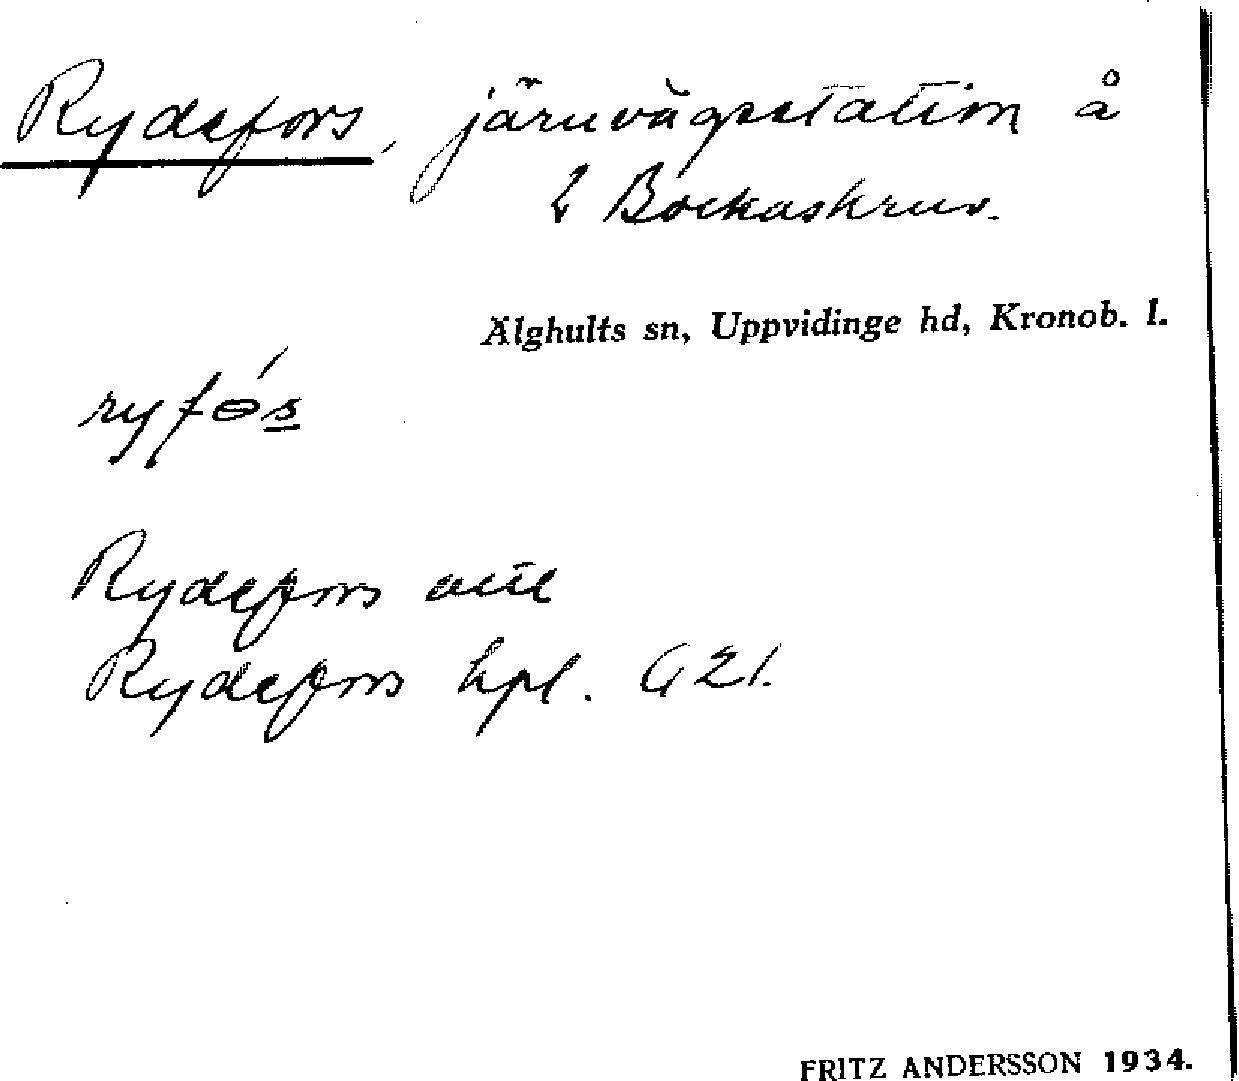 Rydefors, järnvägsstation å
2 Bockaskruv.
Älghults sn, Uppvidinge hd, Kronob. l.
ryfɵ́s
Rydefors
Rydefors hpl. G 21.
FRITZ ANDERSSON 1934.